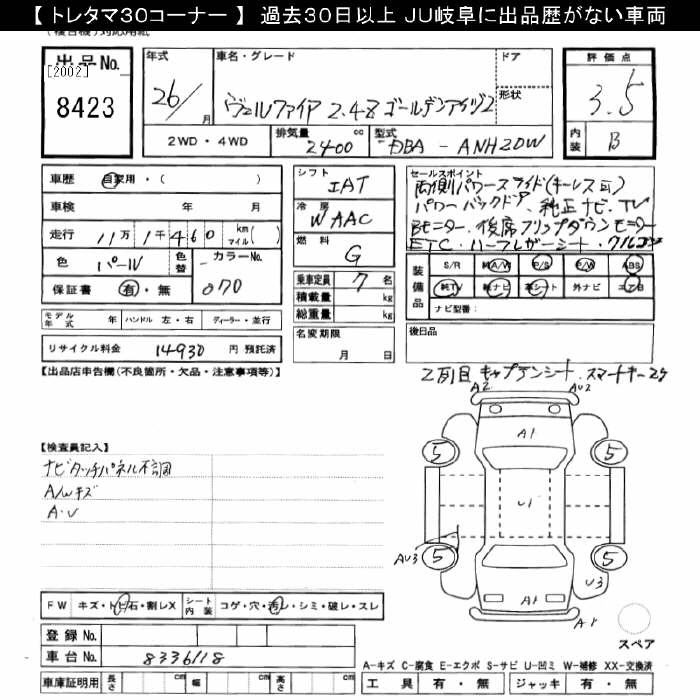 【 トレタマ30コーナー 】 過去30日以上 JU岐阜に出品歴がない車両
出品No.
[2002]
8423
年式
26/
月
車名・グレード
ヴェルファイア 2.4Z ゴールデンアイズ2
ドア
形状
評価点
3.5
内装
B
2WD・4WD
排気量
2400
cc
型式
DBA - ANH20W
車歴
自家用・( )
車検
年 月
走行
11万1千460
km
マイル( )
色
パール
色替
カラーNo.
070
保証書
有・無
シフト
IAT
冷房
WAAC
燃料
G
乗車定員
7名
積載量
kg
総重量
kg
名変期限
月 日
セールスポイント
両側パワースライド(キーレス可)
パワーバックドア、純正ナビ・TV
Bモニター・後席フリップダウンモニター
ETC・ハーフレザーシート・クルコン
装備品
S/R 純A/W P/S P/W ABS
純TV 純ナビ 革シート 外ナビ エアB
ナビ型番:
後日品
モデル年式
年
ハンドル 左・右
ディーラー・並行
リサイクル料金
14930
円 預託済
【出品店申告欄(不良箇所・欠品・注意事項等)】
2列目キャプテンシート.スマートキー2ケ
A2
AU2
A1
5
5
U1
AU3
5
5
U3
A1
A1
スペア
【検査員記入】
ナビタッチパネル不調
A/Wキズ
A・U
FW
キズ・トビ石・割レX
シート内装
コゲ・穴・汚レ・シミ・破レ・スレ
登録No.
車台No.
8336118
車庫証明用
長さ
cm
幅
cm
高さ
cm
A-キズ C-腐食 E-エクボ S-サビ U-凹ミ W-補修 XX-交換済
工具
有・無
ジャッキ
有・無